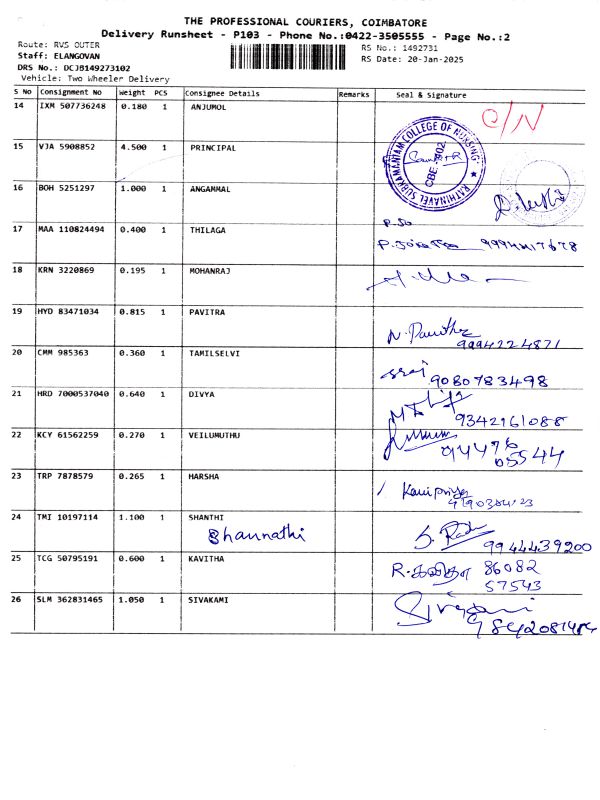 THE PROFESSIONAL COURIERS, COIMBATORE
Delivery Runsheet - P103 - Phone No.:0422-3505555 - Page No.:2
Route: RVS OUTER
RS No.: 1492731
Staff: ELANGOVAN
RS Date: 20-Jan-2025
DRS No.: DCJB149273102
Vehicle: Two Wheeler Delivery
S No Consignment No Weight PCS Consignee Details Remarks Seal & Signature
14 IXM 507736248 0.180 1 ANJUMOL
15 VJA 5908852 4.500 1 PRINCIPAL
RATHINAVEL SUBRAMANIAM COLLEGE OF NURSING
CBE-402
16 BOH 5251297 1.000 1 ANGAMMAL
17 MAA 110824494 0.400 1 THILAGA
18 KRN 3220869 0.195 1 MOHANRAJ
19 HYD 83471034 0.815 1 PAVITRA
N. Pavithra
9994224871
20 CMM 985363 0.360 1 TAMILSELVI
9080783498
21 HRD 7000537040 0.640 1 DIVYA
9342161088
22 KCY 61562259 0.270 1 VEILUMUTHU
94476
05544
23 TRP 7878579 0.265 1 HARSHA
Kavi priya
24 TMI 10197114 1.100 1 SHANTHI
Shannathi
9944439200
25 TCG 50795191 0.600 1 KAVITHA
R. கவிதா 86082
57543
26 SLM 362831465 1.050 1 SIVAKAMI
Sivagami